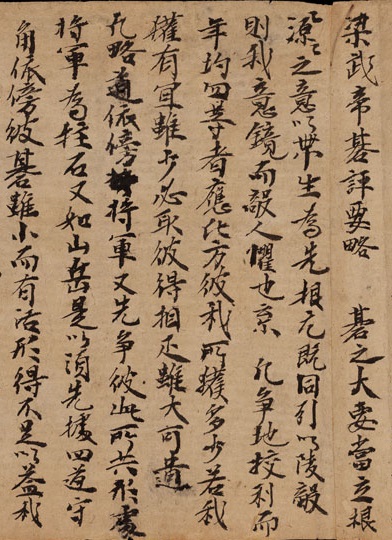 梁武帝碁評要略　碁之大要當立根
源々之意以帶生為先根元既固引以陵敵
則我意鏡而敵人懼也　凡爭地校利而
均四等者應比方彼我所獲多少若我
獲有宜雖少必取彼得相匹雖大可遺
凡略道依傍將軍又先爭彼此所共形處
將軍為柱石又如山岳是以須先據四道守
角依傍彼碁雖小而有活形得不足以益我